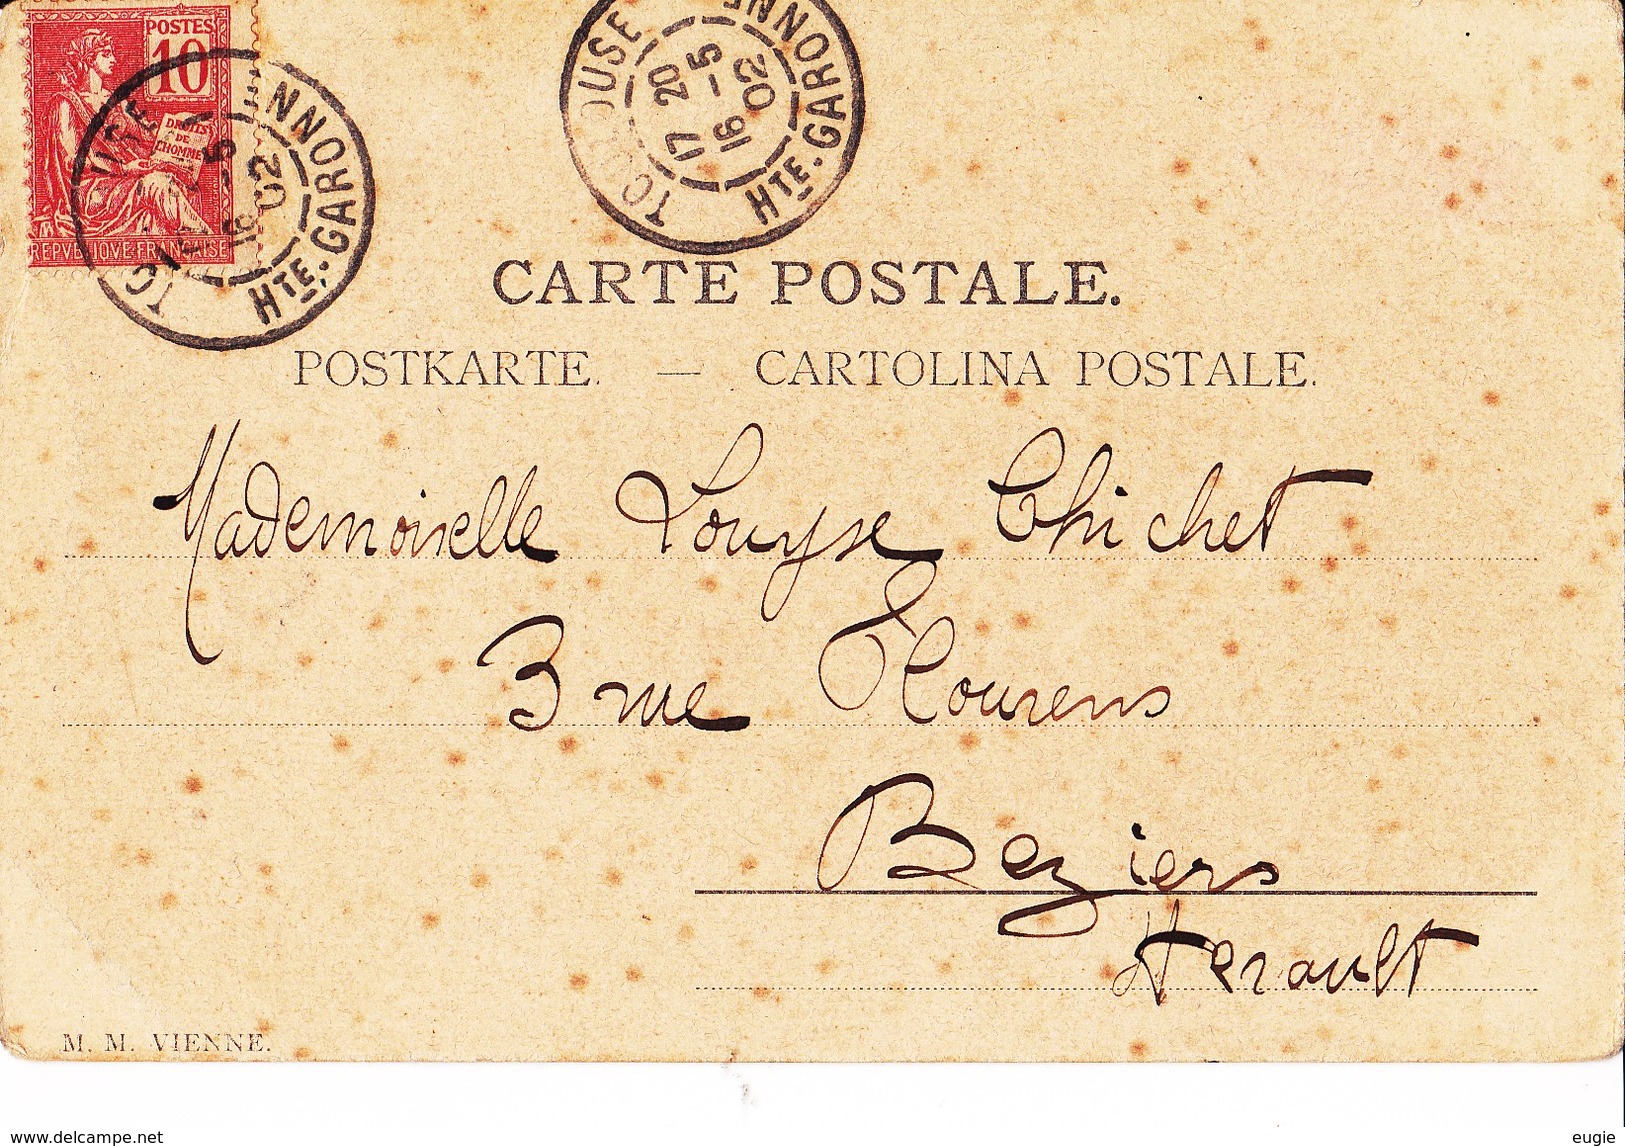 POSTES
10
DROITS
DE
L'HOMME
REPVBLIQVE FRANÇAISE
17 20
16 -5
02
HTE-GARONNE
TOULOUSE
17 20
16 -5
02
HTE-GARONNE
CARTE POSTALE.
POSTKARTE. — CARTOLINA POSTALE.
Mademoiselle Louyse Chichet
3 rue Flourens
Beziers
Herault
M. M. VIENNE.
www.delcampe.net
eugie